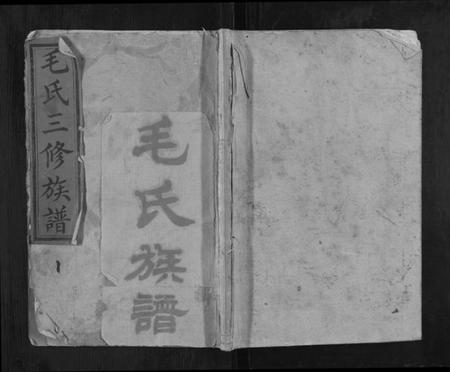 毛氏三修族譜
毛氏族譜